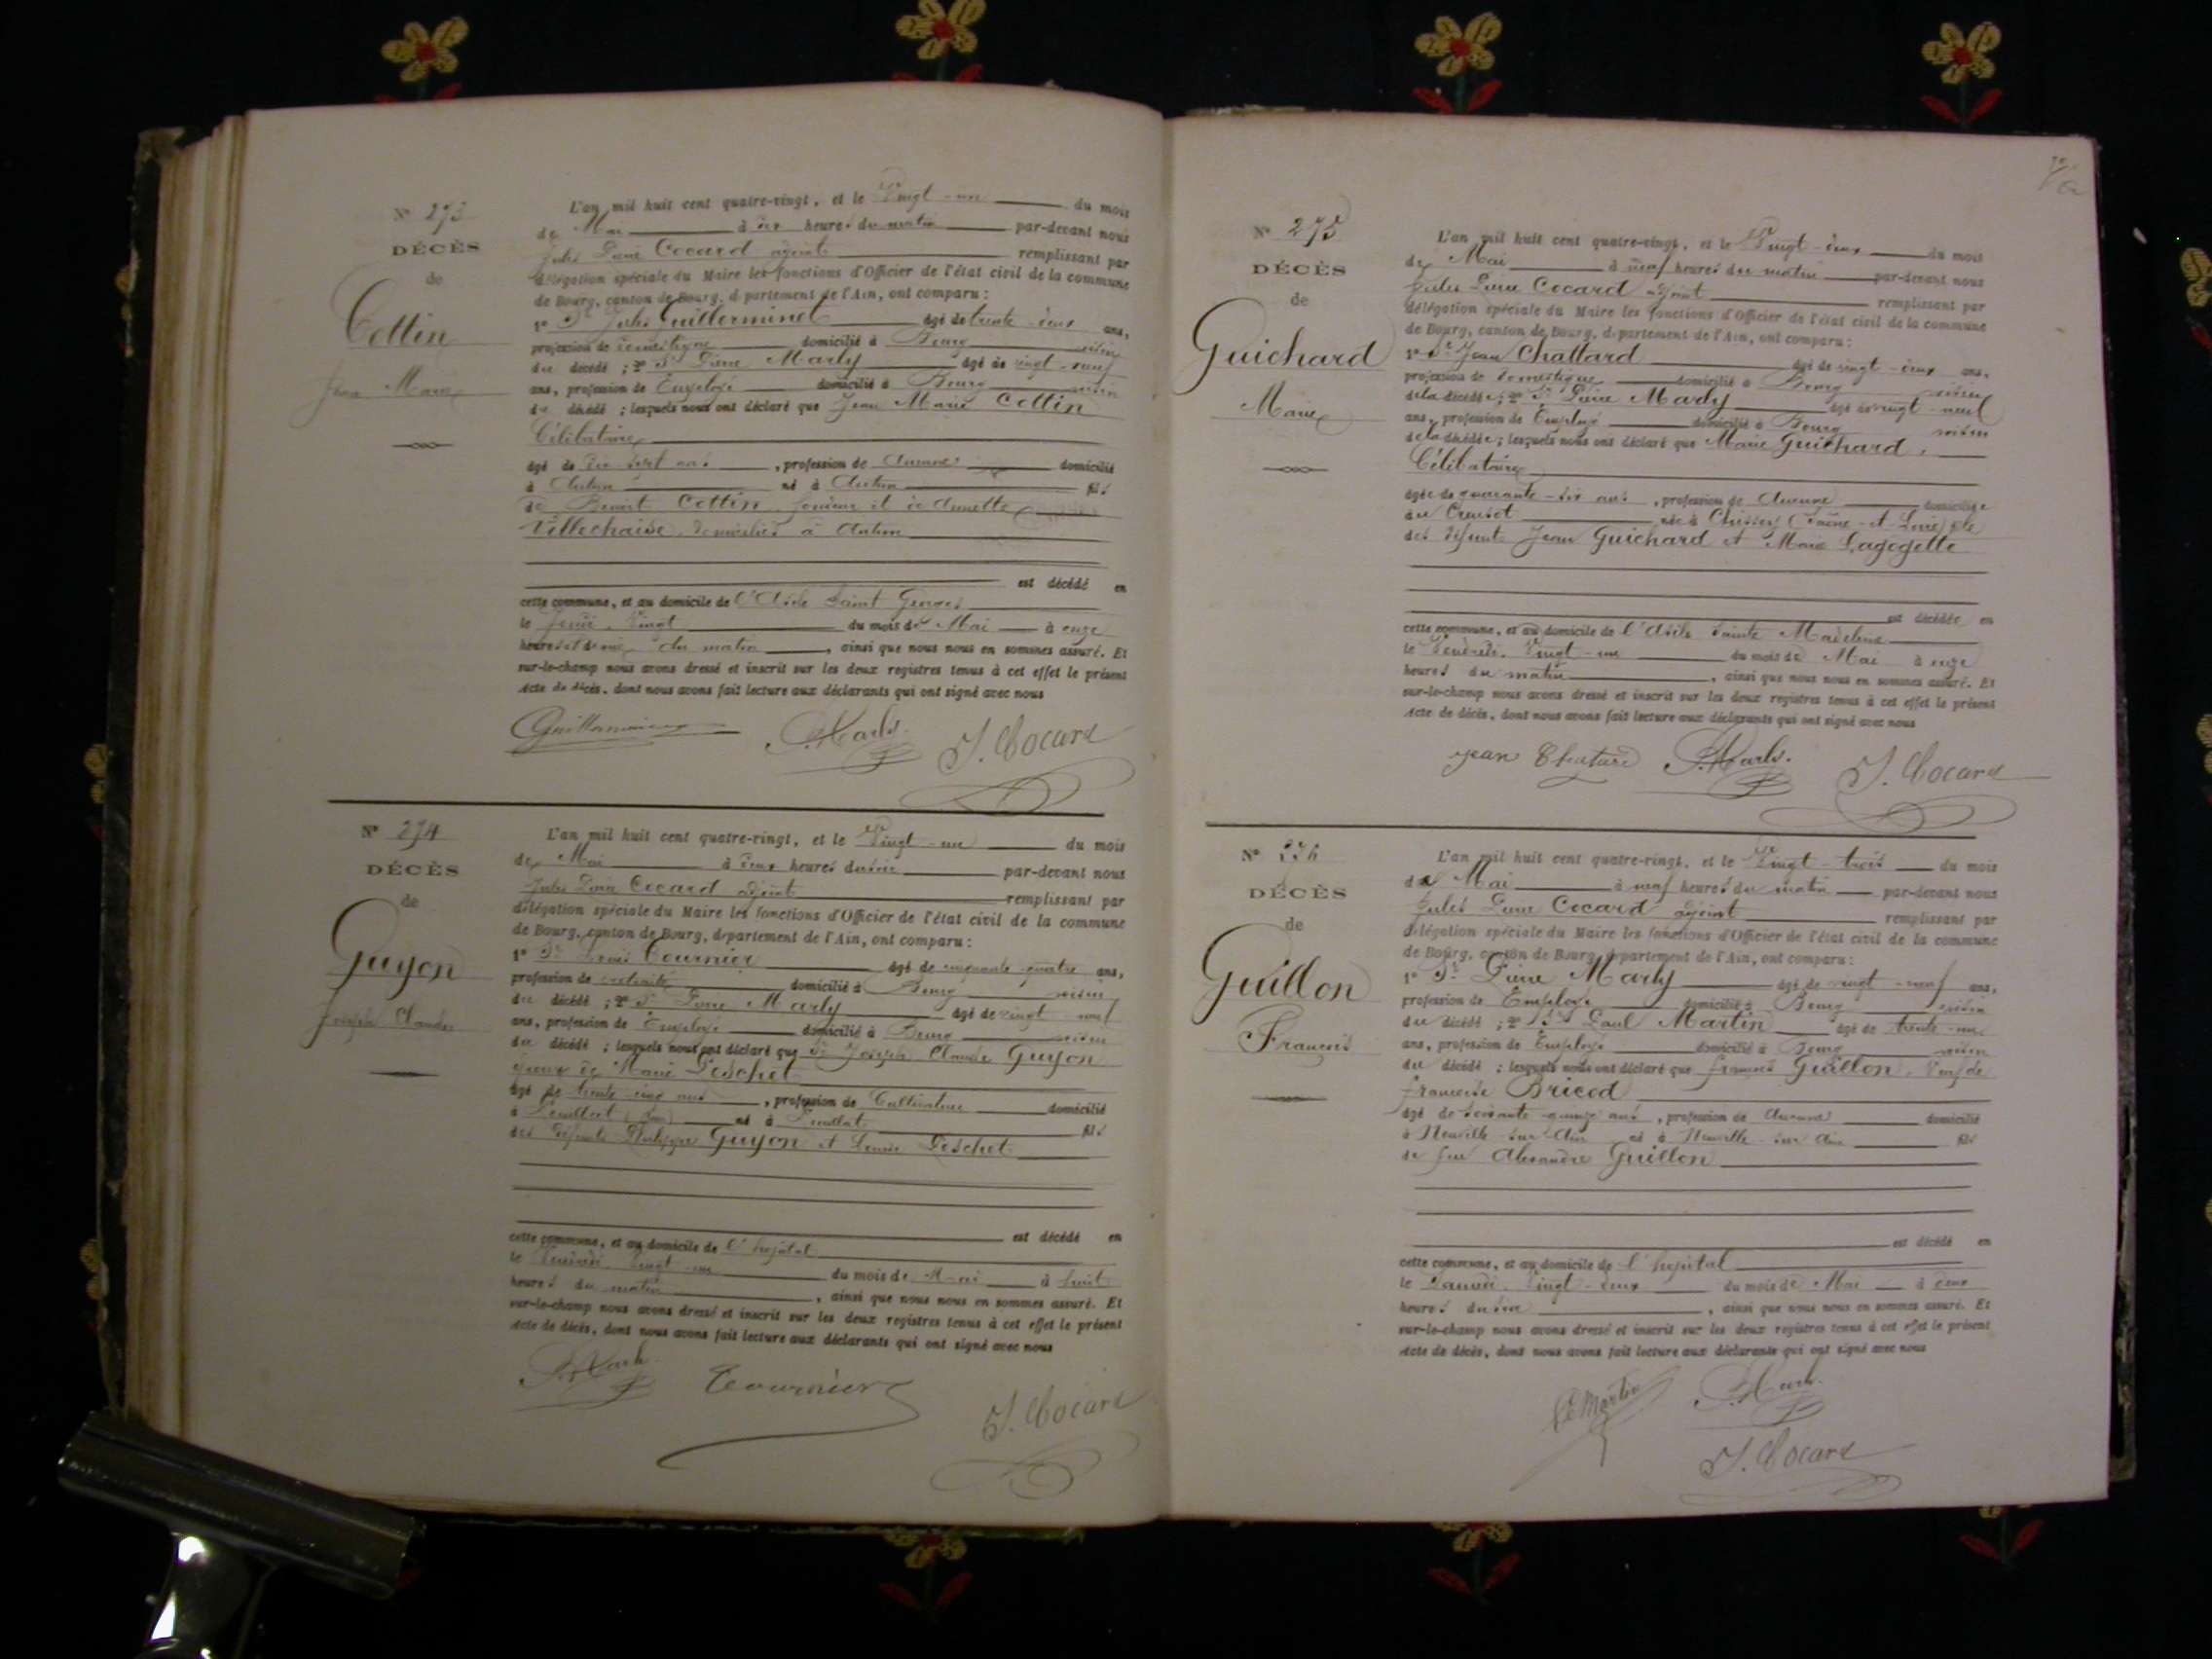 N° 273
DÉCÈS
de
Cottin
Jean Marie
L'an mil huit cent quatre-vingt, et le Vingt-un du mois
de Mai à dix heures du matin par-devant nous
Jules Pierre Cocard adjoint remplissant par
délégation spéciale du Maire les fonctions d'Officier de l'état civil de la commune
de Bourg, canton de Bourg, département de l'Ain, ont comparu :
1° Sr Jules Guillerminet âgé de trente-deux ans,
profession de domestique domicilié à Bourg voisin
du décédé ; 2° Sr Pierre Marly âgé de vingt-neuf
ans, profession de Employé domicilié à Bourg voisin
du décédé ; lesquels nous ont déclaré que Jean Marie Cottin
Célibataire
âgé de dix-sept ans, profession de Aucune domicilié
à Autun né à Autun fils
de Benoit Cottin et de Annette
Villechaise, domiciliés à Autun
est décédé en
cette commune, et au domicile de l'Asile Saint Georges
le Jeudi, Vingt du mois de Mai à onze
heures et demie du matin, ainsi que nous nous en sommes assuré. Et
sur-le-champ nous avons dressé et inscrit sur les deux registres tenus à cet effet le présent
acte de décès, dont nous avons fait lecture aux déclarants qui ont signé avec nous
P. Marly J. Cocard
N° 274
DÉCÈS
de
Guyon
Joseph Claude
L'an mil huit cent quatre-vingt, et le Vingt-un du mois
de Mai à deux heures du soir par-devant nous
Jules Pierre Cocard adjoint remplissant par
délégation spéciale du Maire les fonctions d'Officier de l'état civil de la commune
de Bourg, canton de Bourg, département de l'Ain, ont comparu :
1° Sr Tournier âgé de cinquante-quatre ans,
profession de retraité domicilié à Bourg voisin
du décédé ; 2° Sr Pierre Marly âgé de vingt-neuf
ans, profession de Employé domicilié à Bourg voisin
du décédé ; lesquels nous ont déclaré que Sr Joseph Claude Guyon
époux de Marie Peschet
âgé de trente-cinq ans, profession de Cultivateur domicilié
à (Ain) né à fils
des défunts Philippe Guyon et Louise Peschet
est décédé en
cette commune, et au domicile de l'hopital
le Vendredi Vingt-un du mois de Mai à huit
heures du matin, ainsi que nous nous en sommes assuré. Et
sur-le-champ nous avons dressé et inscrit sur les deux registres tenus à cet effet le présent
acte de décès, dont nous avons fait lecture aux déclarants qui ont signé avec nous
P. Marly Tournier J. Cocard
N° 275
DÉCÈS
de
Guichard
Marie
L'an mil huit cent quatre-vingt, et le Vingt-deux du mois
de Mai à neuf heures du matin par-devant nous
Jules Pierre Cocard adjoint remplissant par
délégation spéciale du Maire les fonctions d'Officier de l'état civil de la commune
de Bourg, canton de Bourg, département de l'Ain, ont comparu :
1° Sr Jean Chattard âgé de vingt-deux ans,
profession de domestique domicilié à Bourg voisin
de la décédée ; 2° Sr Pierre Marly âgé de vingt-neuf
ans, profession de Employé domicilié à Bourg voisin
de la décédée ; lesquels nous ont déclaré que Marie Guichard,
Célibataire
âgée de quarante-six ans, profession de Aucune domiciliée
au Creusot née à Chissey (Saône-et-Loire) fille
des défunts Jean Guichard et Marie Lagogette
est décédée en
cette commune, et au domicile de l'Asile Sainte Madeleine
le Vendredi, Vingt-un du mois de Mai à onze
heures du matin, ainsi que nous nous en sommes assuré. Et
sur-le-champ nous avons dressé et inscrit sur les deux registres tenus à cet effet le présent
acte de décès, dont nous avons fait lecture aux déclarants qui ont signé avec nous
jean Chatard P. Marly. J. Cocard
N° 276
DÉCÈS
de
Guillon
François
L'an mil huit cent quatre-vingt, et le Vingt-trois du mois
de Mai à neuf heures du matin par-devant nous
Jules Pierre Cocard adjoint remplissant par
délégation spéciale du Maire les fonctions d'Officier de l'état civil de la commune
de Bourg, canton de Bourg, département de l'Ain, ont comparu :
1° Sr Pierre Marly âgé de vingt-neuf ans,
profession de Employé domicilié à Bourg voisin
du décédé ; 2° Sr Paul Martin âgé de trente-un
ans, profession de Employé domicilié à Bourg voisin
du décédé ; lesquels nous ont déclaré que François Guillon, Veuf de
Françoise Bricod
âgé de soixante-quinze ans, profession de Aucune domicilié
à Neuville-sur-Ain né à Neuville-sur-Ain fils
de feu Alexandre Guillon
est décédé en
cette commune, et au domicile de l'hopital
le Samedi, Vingt-deux du mois de Mai à deux
heures du soir, ainsi que nous nous en sommes assuré. Et
sur-le-champ nous avons dressé et inscrit sur les deux registres tenus à cet effet le présent
acte de décès, dont nous avons fait lecture aux déclarants qui ont signé avec nous
P. Martin P. Marly
J. Cocard